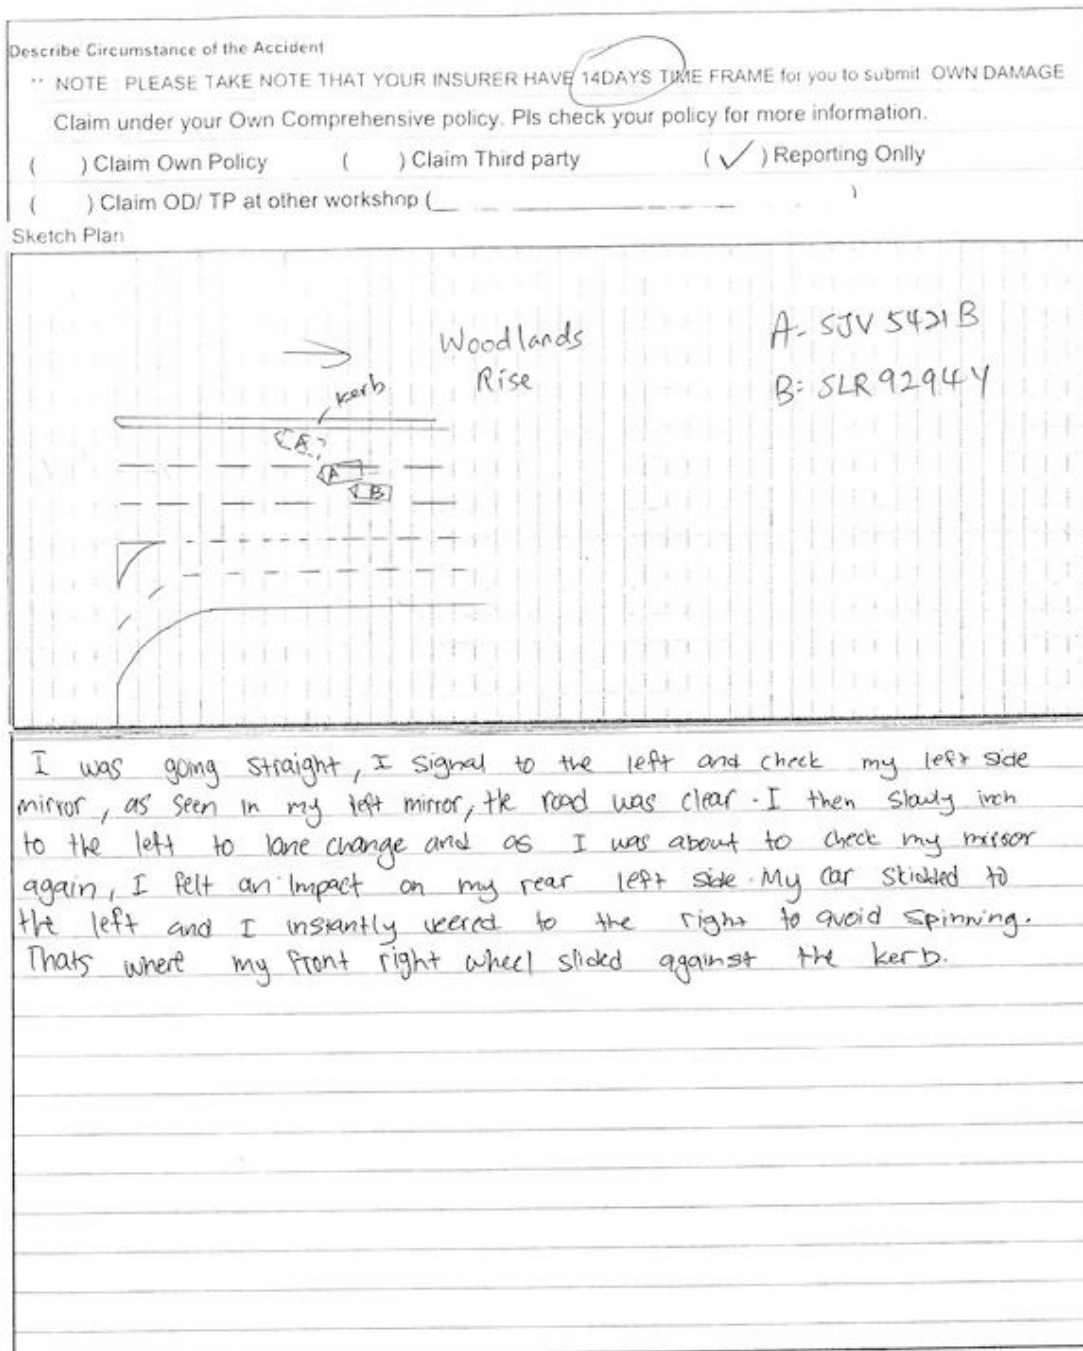 Describe Circumstance of the Accident
** NOTE : PLEASE TAKE NOTE THAT YOUR INSURER HAVE 14DAYS TIME FRAME for you to submit OWN DAMAGE
Claim under your Own Comprehensive policy. Pls check your policy for more information.
( ) Claim Own Policy ( ) Claim Third party ( ✓ ) Reporting Onlly
( ) Claim OD/ TP at other workshop ( )
Sketch Plan
Woodlands
Rise
A- SJV 5421 B
B: SLR 9294 Y
kerb
A
A
B
I was going straight, I signal to the left and check my left side
mirror, as seen in my left mirror, the road was clear. I then slowly inch
to the left to lane change and as I was about to check my mirror
again, I felt an impact on my rear left side. My car skidded to
the left and I instantly veered to the right to avoid spinning.
Thats where my front right wheel slided against the kerb.